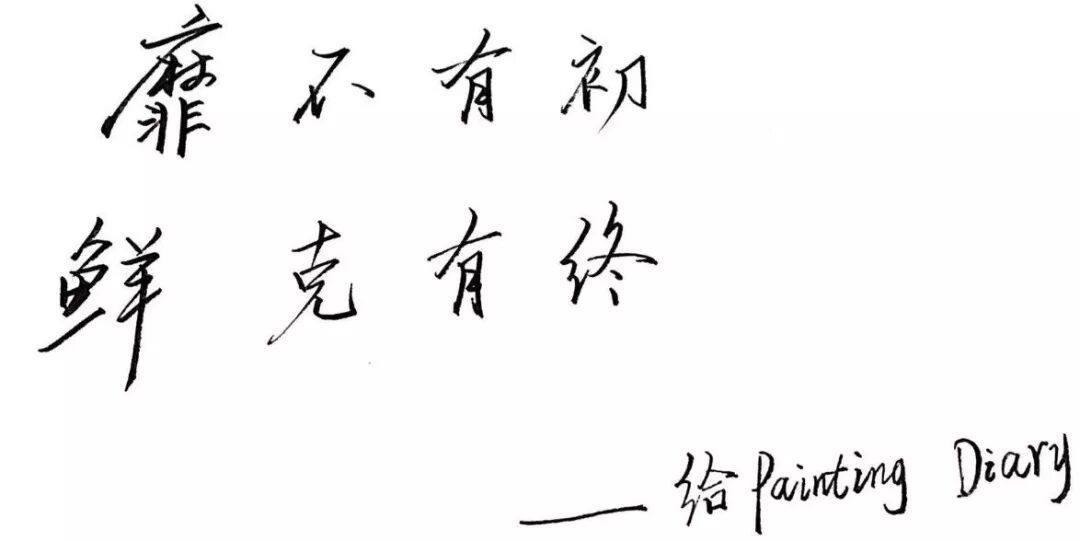 靡不有初
鲜克有终
——给Painting Diary